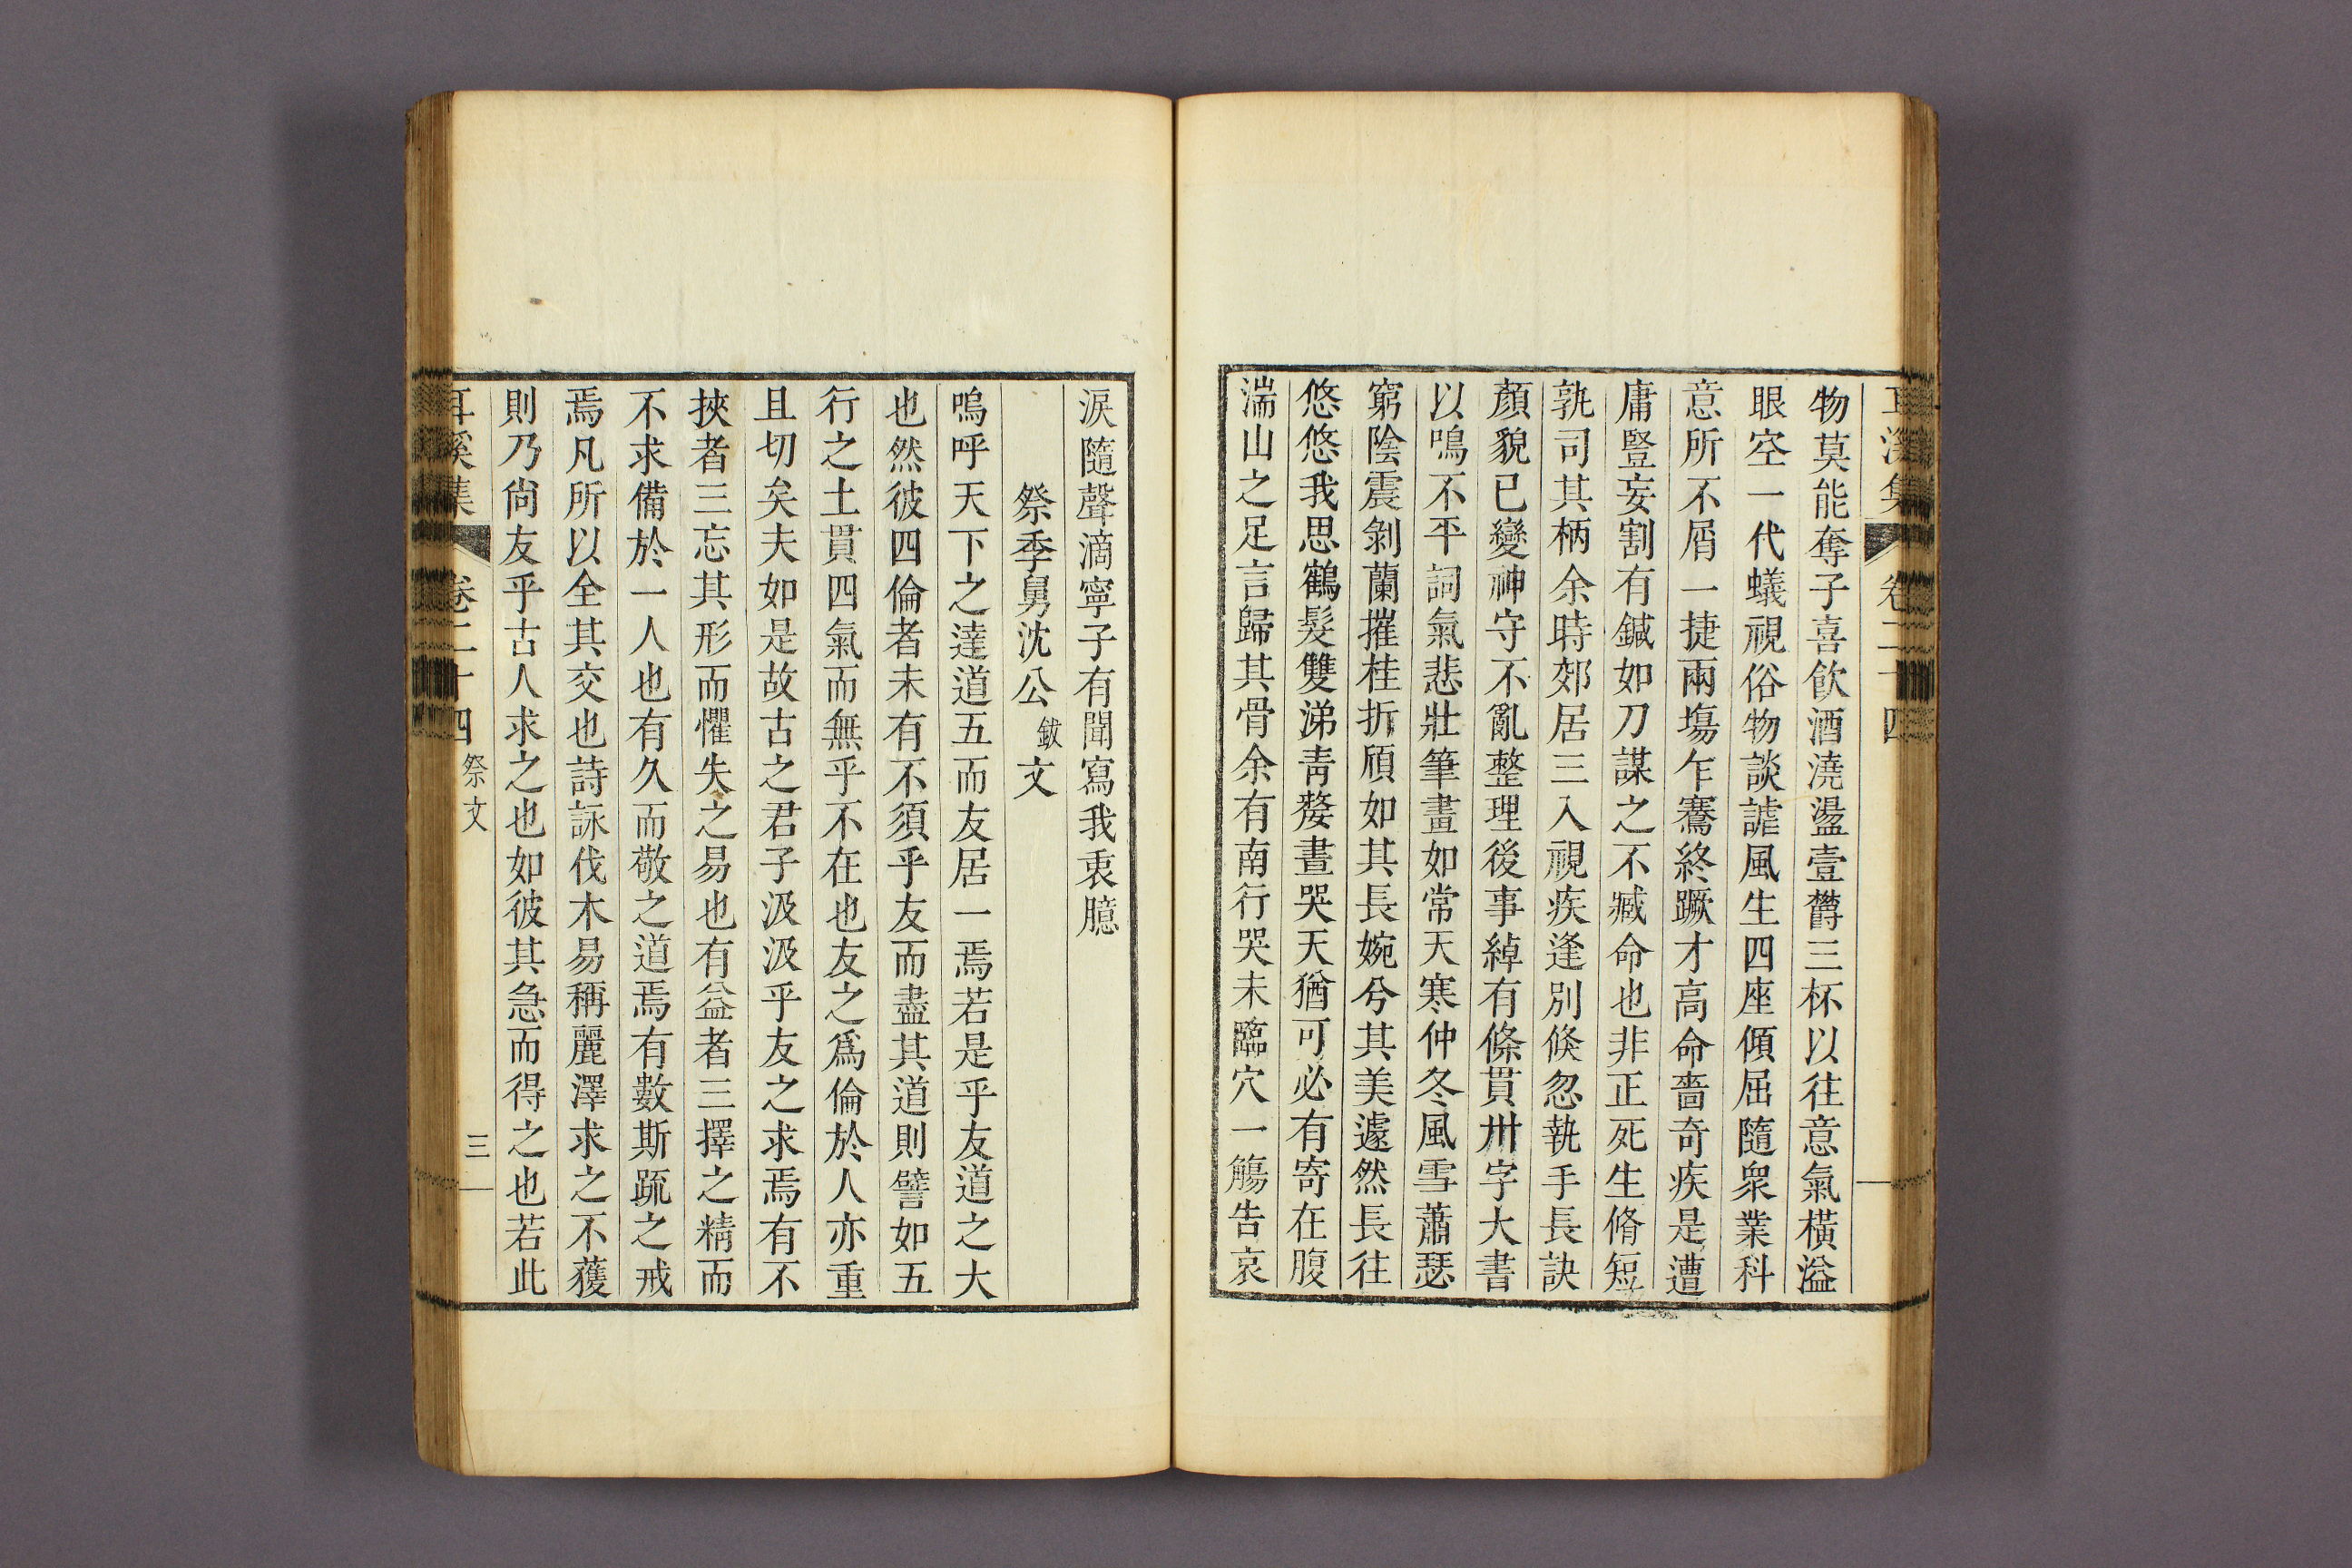 耳溪集 卷二十四
物莫能奪子喜飮酒澆盪壹欝三杯以往意氣橫溢
眼空一代蟻視俗物談謔風生四座傾屈隨衆業科
意所不屑一捷兩塲乍騫終蹶才高命嗇奇疾是遭
庸豎妄割有鍼如刀謀之不臧命也非正死生脩短
孰司其柄余時郊居三入視疾逢別倐忽執手長訣
顏貌已變神守不亂整理後事綽有條貫卅字大書
以鳴不平詞氣悲壯筆畫如常天寒仲冬風雪蕭瑟
窮陰震剝蘭摧桂折頎如其長婉兮其美遽然長往
悠悠我思鶴髮雙涕靑嫠晝哭天猶可必有寄在腹
湍山之足言歸其骨余有南行哭未臨穴一觴告哀
淚隨聲滴寧子有聞寫我衷臆
祭季舅沈公鈸文
嗚呼天下之達道五而友居一焉若是乎友道之大
也然彼四倫者未有不須乎友而盡其道則譬如五
行之土貫四氣而無乎不在也友之爲倫於人亦重
且切矣夫如是故古之君子汲汲乎友之求焉有不
挾者三忘其形而懼失之易也有益者三擇之精而
不求備於一人也有久而敬之道焉有數斯疏之戒
焉凡所以全其交也詩詠伐木易稱麗澤求之不獲
則乃尙友乎古人求之也如彼其急而得之也若此
耳溪集 卷二十四 祭文 三